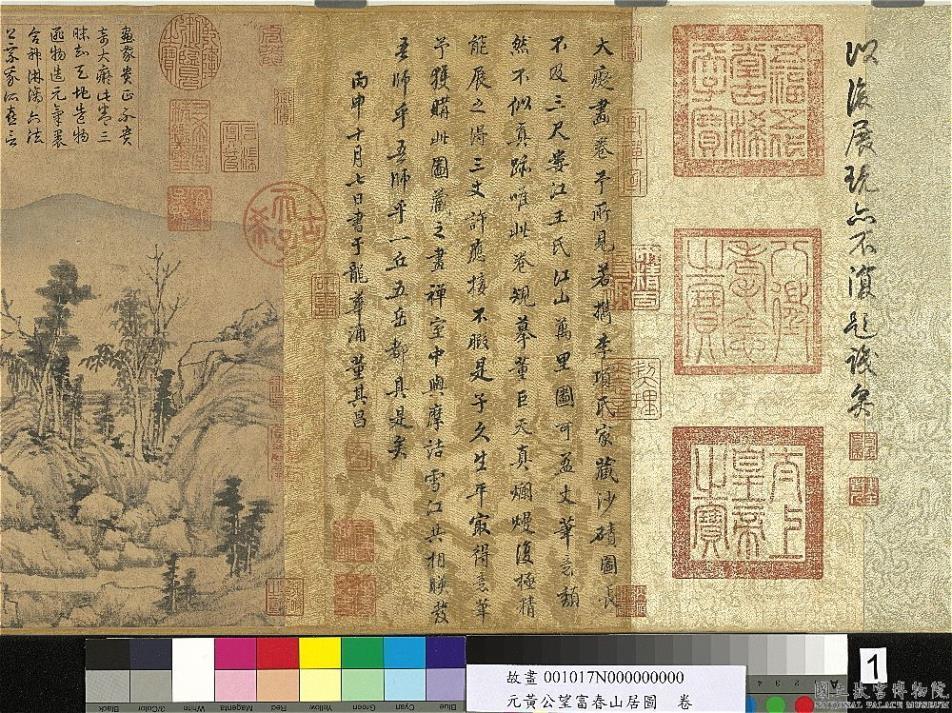 以後展玩亦不復題識矣
五福五代堂古稀天子寶
八徵耄念之寶
太上皇帝之寶
大癡畫卷予所見若檇李項氏家藏沙磧圖長
不及三尺婁江王氏江山萬里圖可盈丈筆意頹
然不似真跡唯此卷規摹董巨天真爛熳復極精
能展之得三丈許應接不暇是子久生平最得意筆
予獲購此圖藏之畫禪室中與摩詰雪江共相映發
吾師乎吾師乎一丘五岳都具是矣
丙申十月七日書于龍華浦董其昌
古希天子
乾隆御覽之寶
畫家貴正不貴
奇大癡此卷三
Black
3/Color
White
Magenta
Red
Yellow
Green
Cyan
Blue
故畫 001017N000000000
元黃公望富春山居圖 卷
1
國立故宮博物院
NATIONAL PALACE MUSEUM